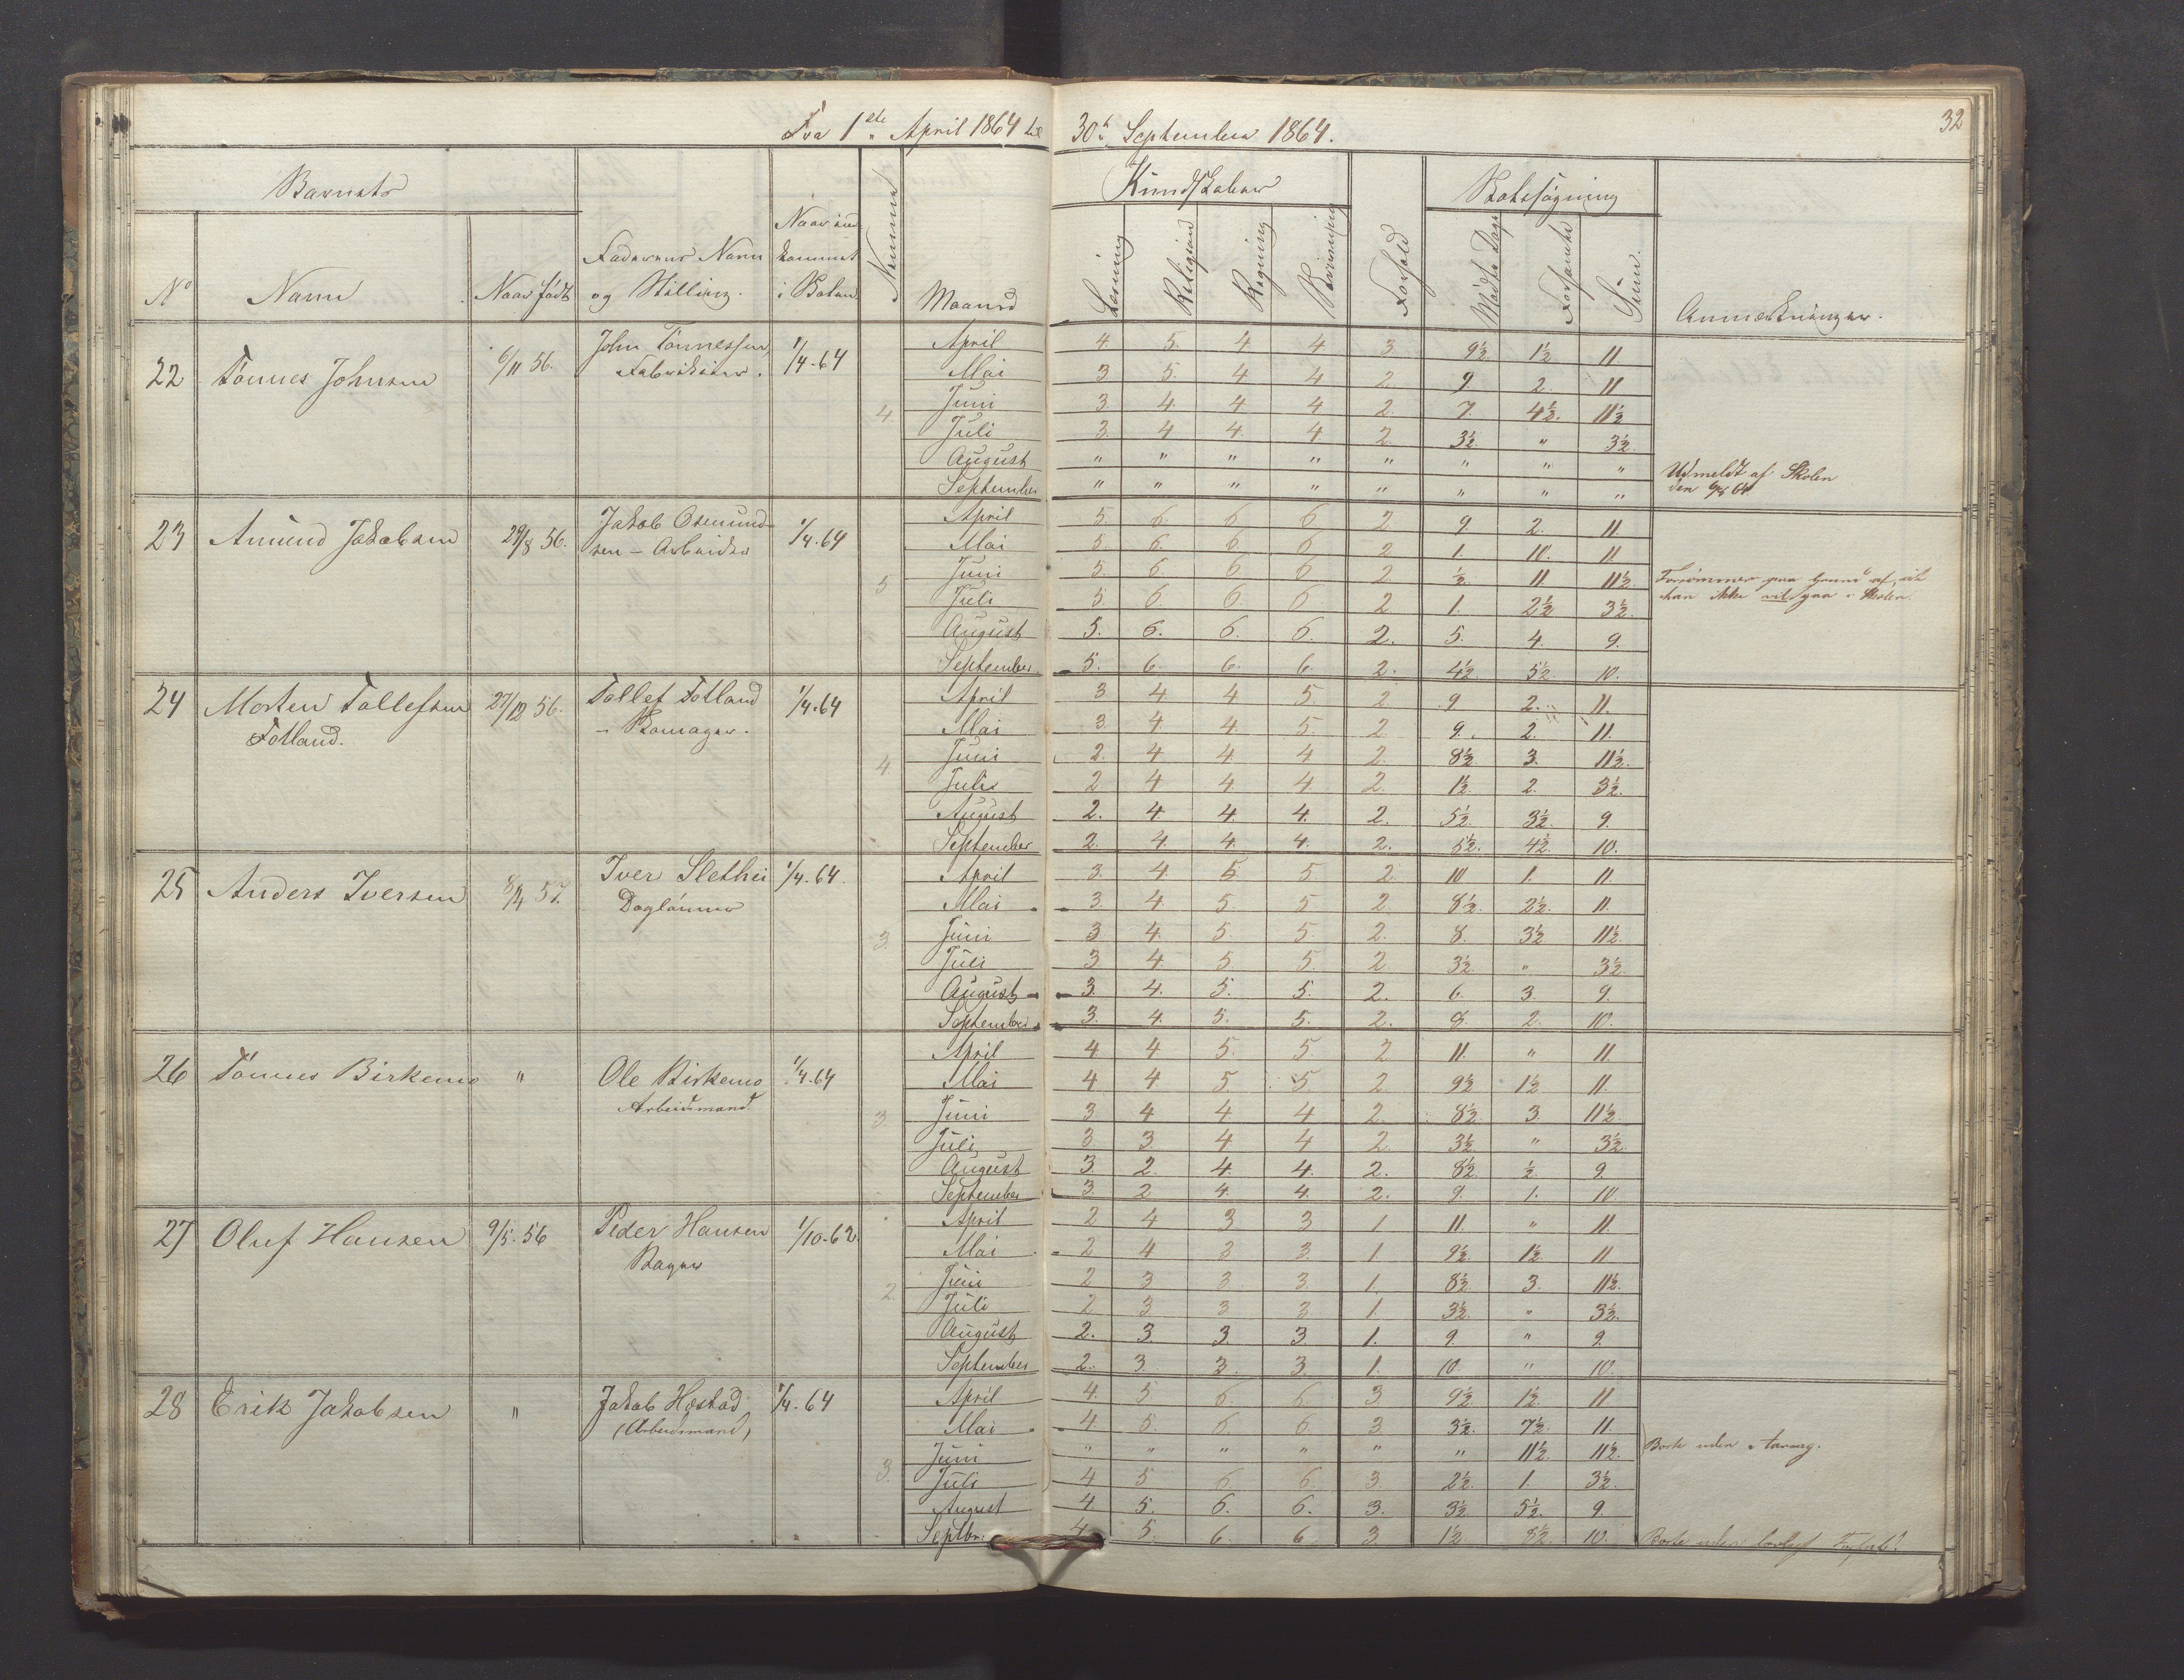 Fra 1ste April 1864 til 30te September 1864. 32
Barnets Kundskaber Skolesøgning
No Navn Naar født Faderens Navn og Stilling. Naar indkommet i Skolen Nummer Maaned Læsning Religion Regning Skrivning Forhold Mødte Dage Forsømte Sum. Anmærkninger.
22 Tønnes Johnsen 6/11 56. John Tønnessen, Fabrikeier. 1/4-64 4.
April 4 5. 4 4 3. 9½ 1½ 11
Mai 3 5. 4 4 2 9. 2. 11
Juni 3. 4. 4 4 2. 7. 4½. 11½
Juli 3. 4 4. 4 2. 3½. " 3½.
August " " " " " " " "
September " " " " " " " " Udmeldt af Skolen
den 9/8 64
23 Amund Jakobsen 29/8 56. Jakob Osmund-
sen – Arbeider 1/4-64 5
April 5. 6. 6 6 2 9. 2. 11.
Mai 5 6. 6 6 2 1. 10. 11
Juni 5. 6. 6. 6 2. ½. 11. 11½. Forsømmer paa Grund af, at
Juli 5 6. 6. 6. 2 1. 2½ 3½. han ikke vil gaa i Skolen.
August 5. 6. 6. 6. 2. 5. 4. 9.
September 5. 6. 6. 6. 2. 4½ 5½. 10.
24 Morten Tollefsen
Totland. 27/12 56. Tollef Totland
– Skomager. 1/4-64 4
April 3 4 4 5. 2 9 2. 11.
Mai 3. 4. 4. 5. 2 9. 2. 11.
Juni 2. 4 4. 4 2. 8½ 3. 11½.
Juli 2 4 4. 4. 2. 1½. 2. 3½.
August 2. 4. 4. 4. 2. 5½. 3½. 9.
September 2. 4. 4. 4. 2. 5½. 4½. 10.
25 Anders Iversen 8/4 57. Iver Slethei
Daglønner 1/4-64. 3.
April 3. 4. 5. 5 2. 10 1. 11.
Mai 3. 4. 5. 5 2. 8½. 2½. 11.
Juni 3 4. 5. 5. 2. 8. 3½ 11½.
Juli 3. 4. 5 5. 2 3½. " 3½.
August 3. 4. 5. 5. 2. 6. 3. 9.
September 3. 4. 5. 5. 2. 8. 2. 10.
26 Tønnes Birkemo " Ole Birkemo
Arbeidsmand 1/4-64 3.
April 4. 4 5. 5. 2 11. " 11.
Mai 4 4 5. 5 2. 9½ 1½ 11.
Juni 3 4 4 4 2. 8½. 3. 11½.
Juli 3. 3. 4 4 2. 3½. " 3½.
August 3. 2. 4. 4. 2. 8½ ½. 9.
September 3. 2 4. 4. 2. 9. 1. 10.
27 Oluf Hansen 9/5. 56 Peder Hansen
Bager 1/10-62. 2.
April 2 4 3 3 1 11. " 11.
Mai 2 4 3 3. 1 9½. 1½. 11
Juni 2 3 3. 3. 1. 8½ 3. 11½.
Juli 2 3 3 3 1. 3½. " 3½.
August 2. 3. 3. 3 1. 9. " 9.
September 2. 3. 3. 3. 1. 10. " 10.
28 Erik Jakobsen " Jakob Hæstad
(Arbeidsmand) 1/4-64 3.
April 4. 5 6. 6 3 9½ 1½. 11
Mai 4. 5. 6 6. 3. 3½. 7½. 11.
Juni " " " " " " 11½. 11½. Borte uden Aarsag.
Juli 4 5 6 6. 3. 2½. 1. 3½.
August 4. 5. 6. 6. 3. 3½ 5½. 9.
Septbr. 4. 5. 6. 6 3. 1½ 8½. 10. Borte uden lovligt Forfald.